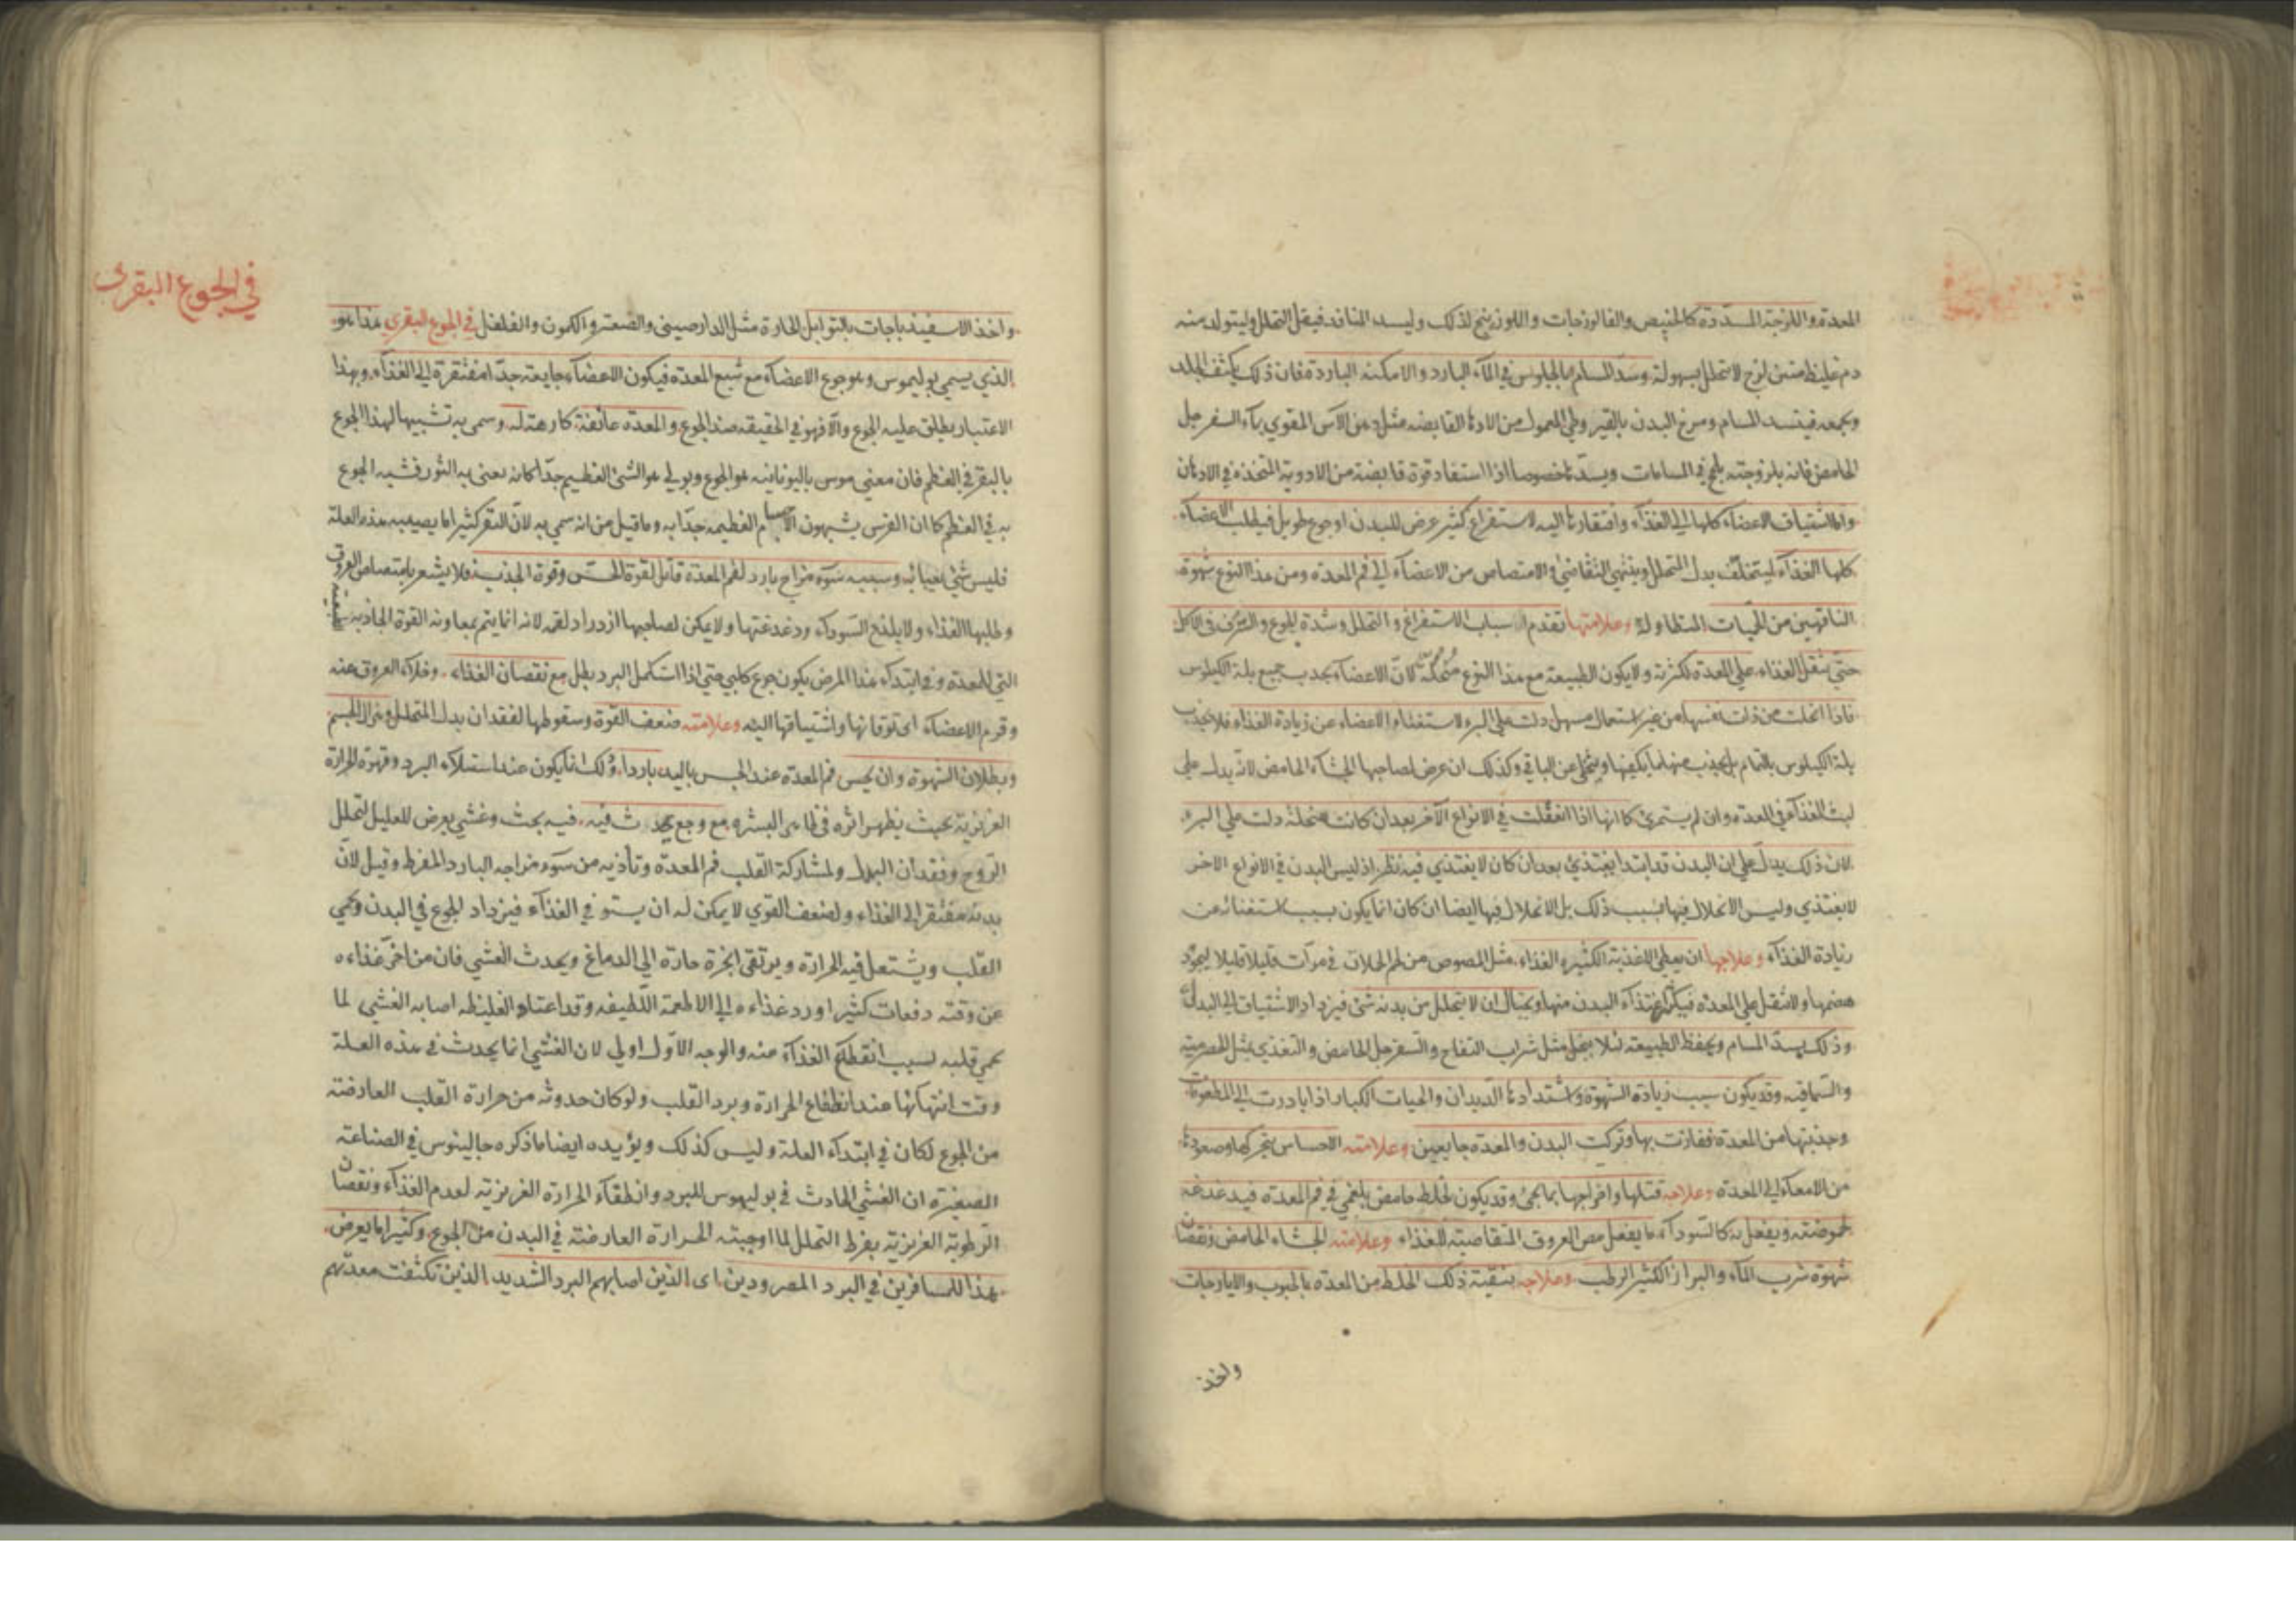 المعدة واللزجة المسددة كالخبيص والفالوذجات واللوزينج لذلك وليسد المنافذ فيقل التحلل وليتولد منه
دم غليظ متين لزج لا يتحلل بسهولة وسد المسام بالجلوس في الماء البارد والامكنة الباردة فان ذلك يكثف الجلد
ويجمعه فينسد المسام ومرخ البدن بالقيروطي المعمول من الادهان القابضة مثل دهن الآس المقوي بماء السفرجل
الحامض فانه بلزوجته يلحج في المسامات ويسدها خصوصا اذا استفاد قوة قابضة من الادوية المتخذة في الادهان
واما لاشتياق الاعضاء كلها الي الغذاء وافتقارها اليه لاستفراغ كثير عرض للبدن او جوع طويل فيطلب الاعضاء
كلها الغذاء ليتخلف بدل المتحلل وينتهي التقاضي والامتصاص من الاعضاء الي فم المعدة ومن هذا النوع شهوة
الناقهين من الحميات المتطاولة وعلامتها تقدم اسباب الاستفراغ والتحلل وشدة الجوع والشره في الاكل
حتي يثقل الغذاء علي المعدة لكثرته ولا يكون الطبيعة مع هذا النوع لان الاعضاء يجذب جميع بلة الكيلوس
فاذا انحلت من ذات نفسها من غير استعمال مسهل دلت علي البرء لاستغناء الاعضاء عن زيادة الغذاء فلا يجذب
بلة الكيلوس بالتمام بل يجذب منها ما يكفيها ويتخلي عن الباقي وكذلك ان عرض لصاحبها الجشاء الحامض لانه يدل علي
لبث الغذاء في المعدة وان لم يستمرئ كما انها اذا انعقلت في الانواع الآخر بعد ان كانت منحلة دلت علي البرء
لان ذلك يدل علي ان البدن قد ابتدا يغتذي بعد ان كان لا يغتذي فيه نظر اذ ليس البدن في الانواع الاخر
لا يغتذي وليس الانحلال فيها لسبب ذلك بل الانحلال فيها ايضا ان كان انما يكون بسبب استغنائه عن
زيادة الغذاء وعلاجها ان يعطي الاغذية الكثيرة الغذاء مثل المصوص من لحم الحملان في مرات قليلا قليلا ليجود
هضمها ولا يثقل علي المعدة فيكثر اغتذاء البدن منها ويحتال ان لا يتحلل من بدنه شئ فيزداد الاشتياق الي البدل
وذلك بسد المسام ويحفظ الطبيعة لئلا ينحل مثل شراب التفاح والسفرجل الحامض والتغذي بمثل الحصرمية
والسماقية وقد يكون سبب زيادة الشهوة واشتدادها الديدان والحيات الكبار اذا بادرت الي المطعومات
وجذبتها من المعدة ففازت بها وتركت البدن والمعدة جايعين وعلامته الاحساس بتحركها وصعودها
من الامعاء الي المعدة وعلاجه قتلها واخراجها بما يجئ وقد يكون لخلط حامض بلغمي في فم المعدة فيدغدغه
لحموضته ويفعل به كالسوداء ما يفعل مص العروق المتقاضية للغذاء وعلامته الجشاء الحامض ونقصان
شهوة شرب الماء والبراز الكثير الرطب وعلاجه بتنقية ذلك الخلط من المعدة بالحبوب والايارجات
واخذ
في الجوع البقري
واخذ الاسفيذباجات بالتوابل الحارة مثل الدارصيني والصعتر والكمون والفلفل في الجوع البقري هذا هو
الذي يسمي بوليموس وهو جوع الاعضاء مع شبع المعدة فيكون الاعضاء جايعة جدا مفتقرة الي الغذاء وبهذا
الاعتبار يطلق عليه الجوع والا فهو في الحقيقة ضد الجوع والمعدة عائفة كارهة له وسمي به تشبيها لهذا الجوع
بالبقر في العظم فان معني موس باليونانية هو الجوع وبولي هو الشئ العظيم جدا كانه يعني به الثور فشبه الجوع
به في العظم كما ان الفرس يشبهون الاجسام العظيمة جدا به وما قيل من انه سمي به لان البقر كثيرا ما يصيبه هذه العلة
فليس شئ يعبا به وسببه سوء مزاج بارد لفم المعدة قاتل لقوة الحس وقوة الجذب فلا يشعر بامتصاص العروق
وطلبها الغذاء ولا بلذع السوداء ودغدغتها ولا يمكن لصاحبها ازدراد لقمة لانه انما يتم بمعاونة القوة الجاذبة
التي للمعدة وفي ابتداء هذا المرض يكون جوع كلبي حتي اذا استكمل البرد بطل مع نقصان الغذاء وخلاء العروق عنه
وقرم الاعضاء اي توقانها واشتياقها اليه وعلامته ضعف القوة وسقوطها لفقدان بدل المتحلل وهزال الجسم
وبطلان الشهوة وان يحس فم المعدة عند الجس باليد باردا وذلك انما يكون عند استيلاء البرد وقهره الحرارة
الغريزية بحيث يظهر اثره في ظاهر البشرة مع وجع يحدث فيه فيه بحث وغشي يعرض للعليل لتحلل
الروح وفقدان البدل ولمشاركة القلب فم المعدة وتأذيه من سوء مزاجه البارد المفرط وقيل لان
بدنه مفتقر الي الغذاء ولضعف القوي لا يمكن له ان يستوفي الغذاء فيزداد الجوع في البدن ويحمي
القلب ويشتعل فيه الحرارة ويرتقي ابخرة حارة الي الدماغ ويحدث الغشي فان من اخر غذاءه
عن وقته دفعات كثيرا او رد غذاءه الي الاطعمة اللطيفة وقد اعتاد الغليظة اصابه الغشي لما
يحمي قلبه لسبب انقطاع الغذاء عنه والوجه الاول اولي لان الغشي انما يحدث في هذه العلة
وقت انتهائها عند انطفاء الحرارة وبرد القلب ولو كان حدوثه من حرارة القلب العارضة
من الجوع لكان في ابتداء العلة وليس كذلك ويؤيده ايضا ما ذكره جالينوس في الصناعة
الصغيرة ان الغشي الحادث في بوليموس للبرد وانطفاء الحرارة الغريزية لعدم الغذاء ونقصان
الرطوبة الغريزية بفرط التحلل لما اوجبته الحرارة العارضة في البدن من الجوع وكثيرا ما يعرض
هذا للمسافرين في البرد المصرودين اي الذين اصابهم البرد الشديد الذين تكثفت معدتهم